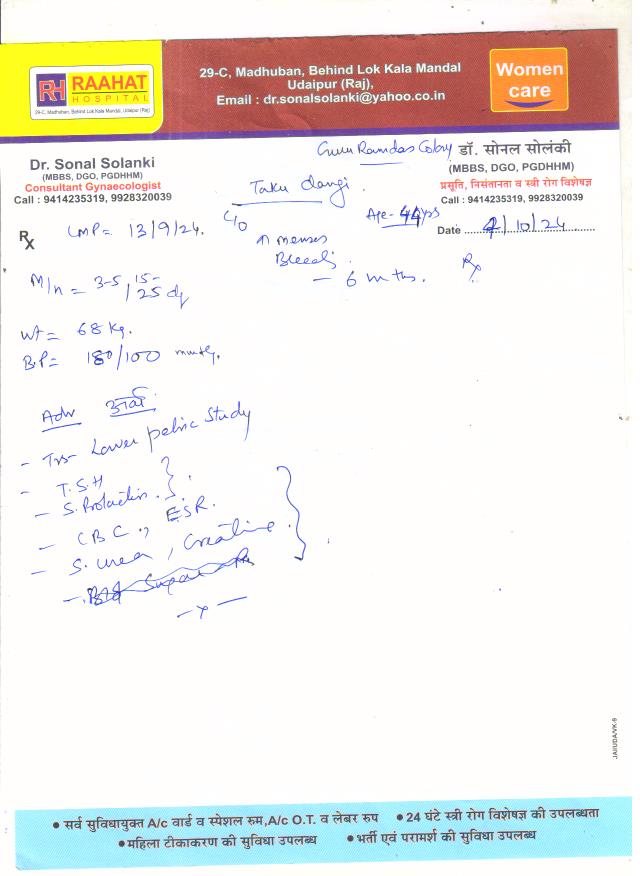 RH RAAHAT
HOSPITAL
29-C, Madhuban, Behind Lok Kala Mandal, Udaipur (Raj)
29-C, Madhuban, Behind Lok Kala Mandal
Udaipur (Raj),
Email : dr.sonalsolanki@yahoo.co.in
Women
care
Dr. Sonal Solanki
(MBBS, DGO, PGDHHM)
Consultant Gynaecologist
Call : 9414235319, 9928320039
Guru Ramdas Colony
डॉ. सोनल सोलंकी
(MBBS, DGO, PGDHHM)
प्रसूति, निसंतानता व स्त्री रोग विशेषज्ञ
Call : 9414235319, 9928320039
Taku dangi
Age - 44 yrs
Date /10/24
Rx LMP = 13/9/24.
C/o ↑ menses
Bleeding
- 6 mths.
Rx
M/n = 3-5/15-25 dy
Wt = 68 kg.
B.P = /100 mmHg.
Adv
- Lower pelvic Study
- T.S.H
- S. Prolactin.
- CBC, ESR.
- S. urea, Creatine
- x -
JAI/UDA/VK-9
• सर्व सुविधायुक्त A/c वार्ड व स्पेशल रुम,A/c O.T. व लेबर रुप • 24 घंटे स्त्री रोग विशेषज्ञ की उपलब्धता
• महिला टीकाकरण की सुविधा उपलब्ध • भर्ती एवं परामर्श की सुविधा उपलब्ध